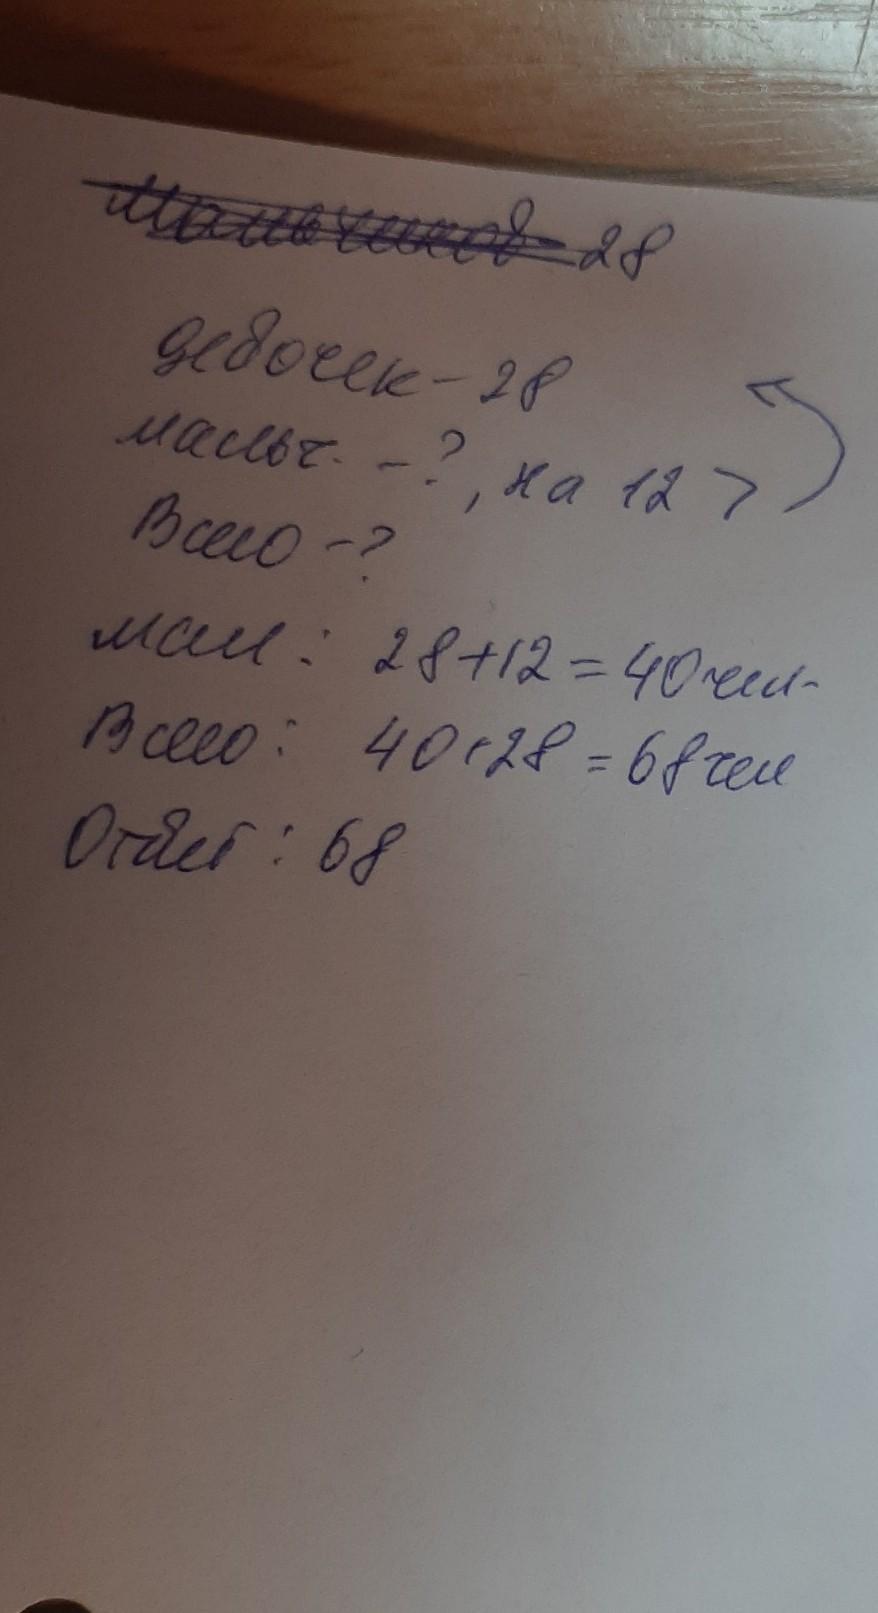 Мальчиков - 28
девочек - 28
мальч. - ?, на 12 >
Всего - ?
мал : 28+12 = 40 чел.
Всего : 40+28 = 68 чел
Ответ : 68